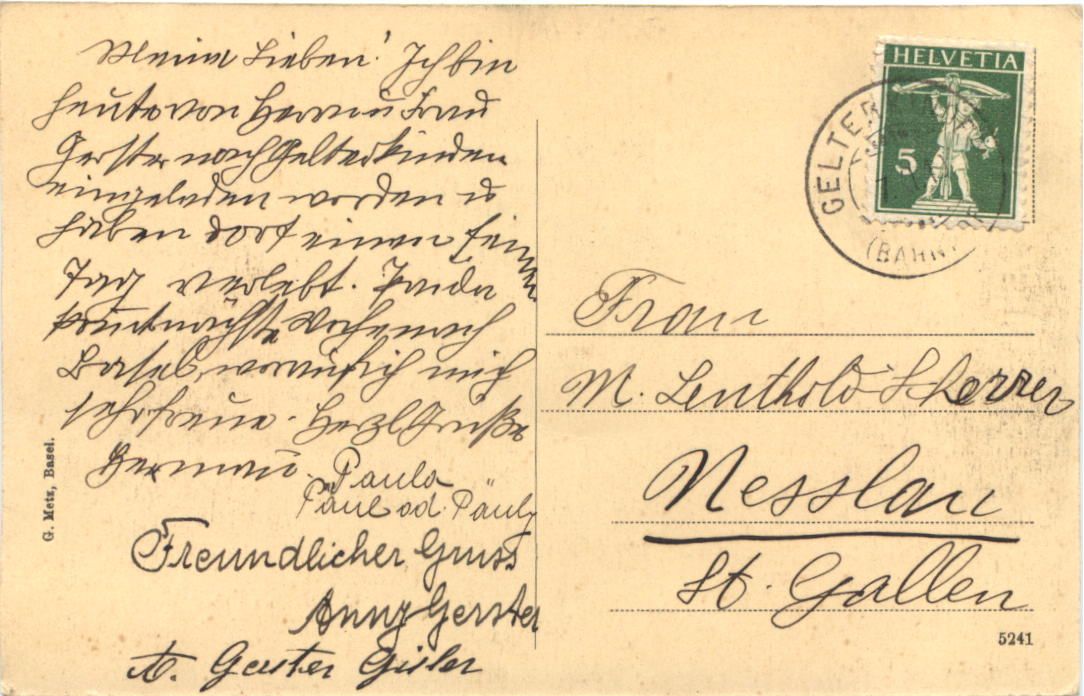 Meine Lieben! Ich bin
heute von Herrn u Frau
Gerster nach Gelterkinden
eingeladen worden u
haben dort einen feinen
Tag verlebt. 
kommt nächste Woche nach
Basel, worauf ich mich
sehr freue. Herzl Grüße
Herman. Paula
Päule od. Päuly
Freundlicher Gruss
Anny Gerster
A. Gerster Gisler
G. Metz, Basel.
HELVETIA
5
GELTER
(BAHN
Frau
M. Leuthold-Scherrer
Nesslau
St. Gallen
5241